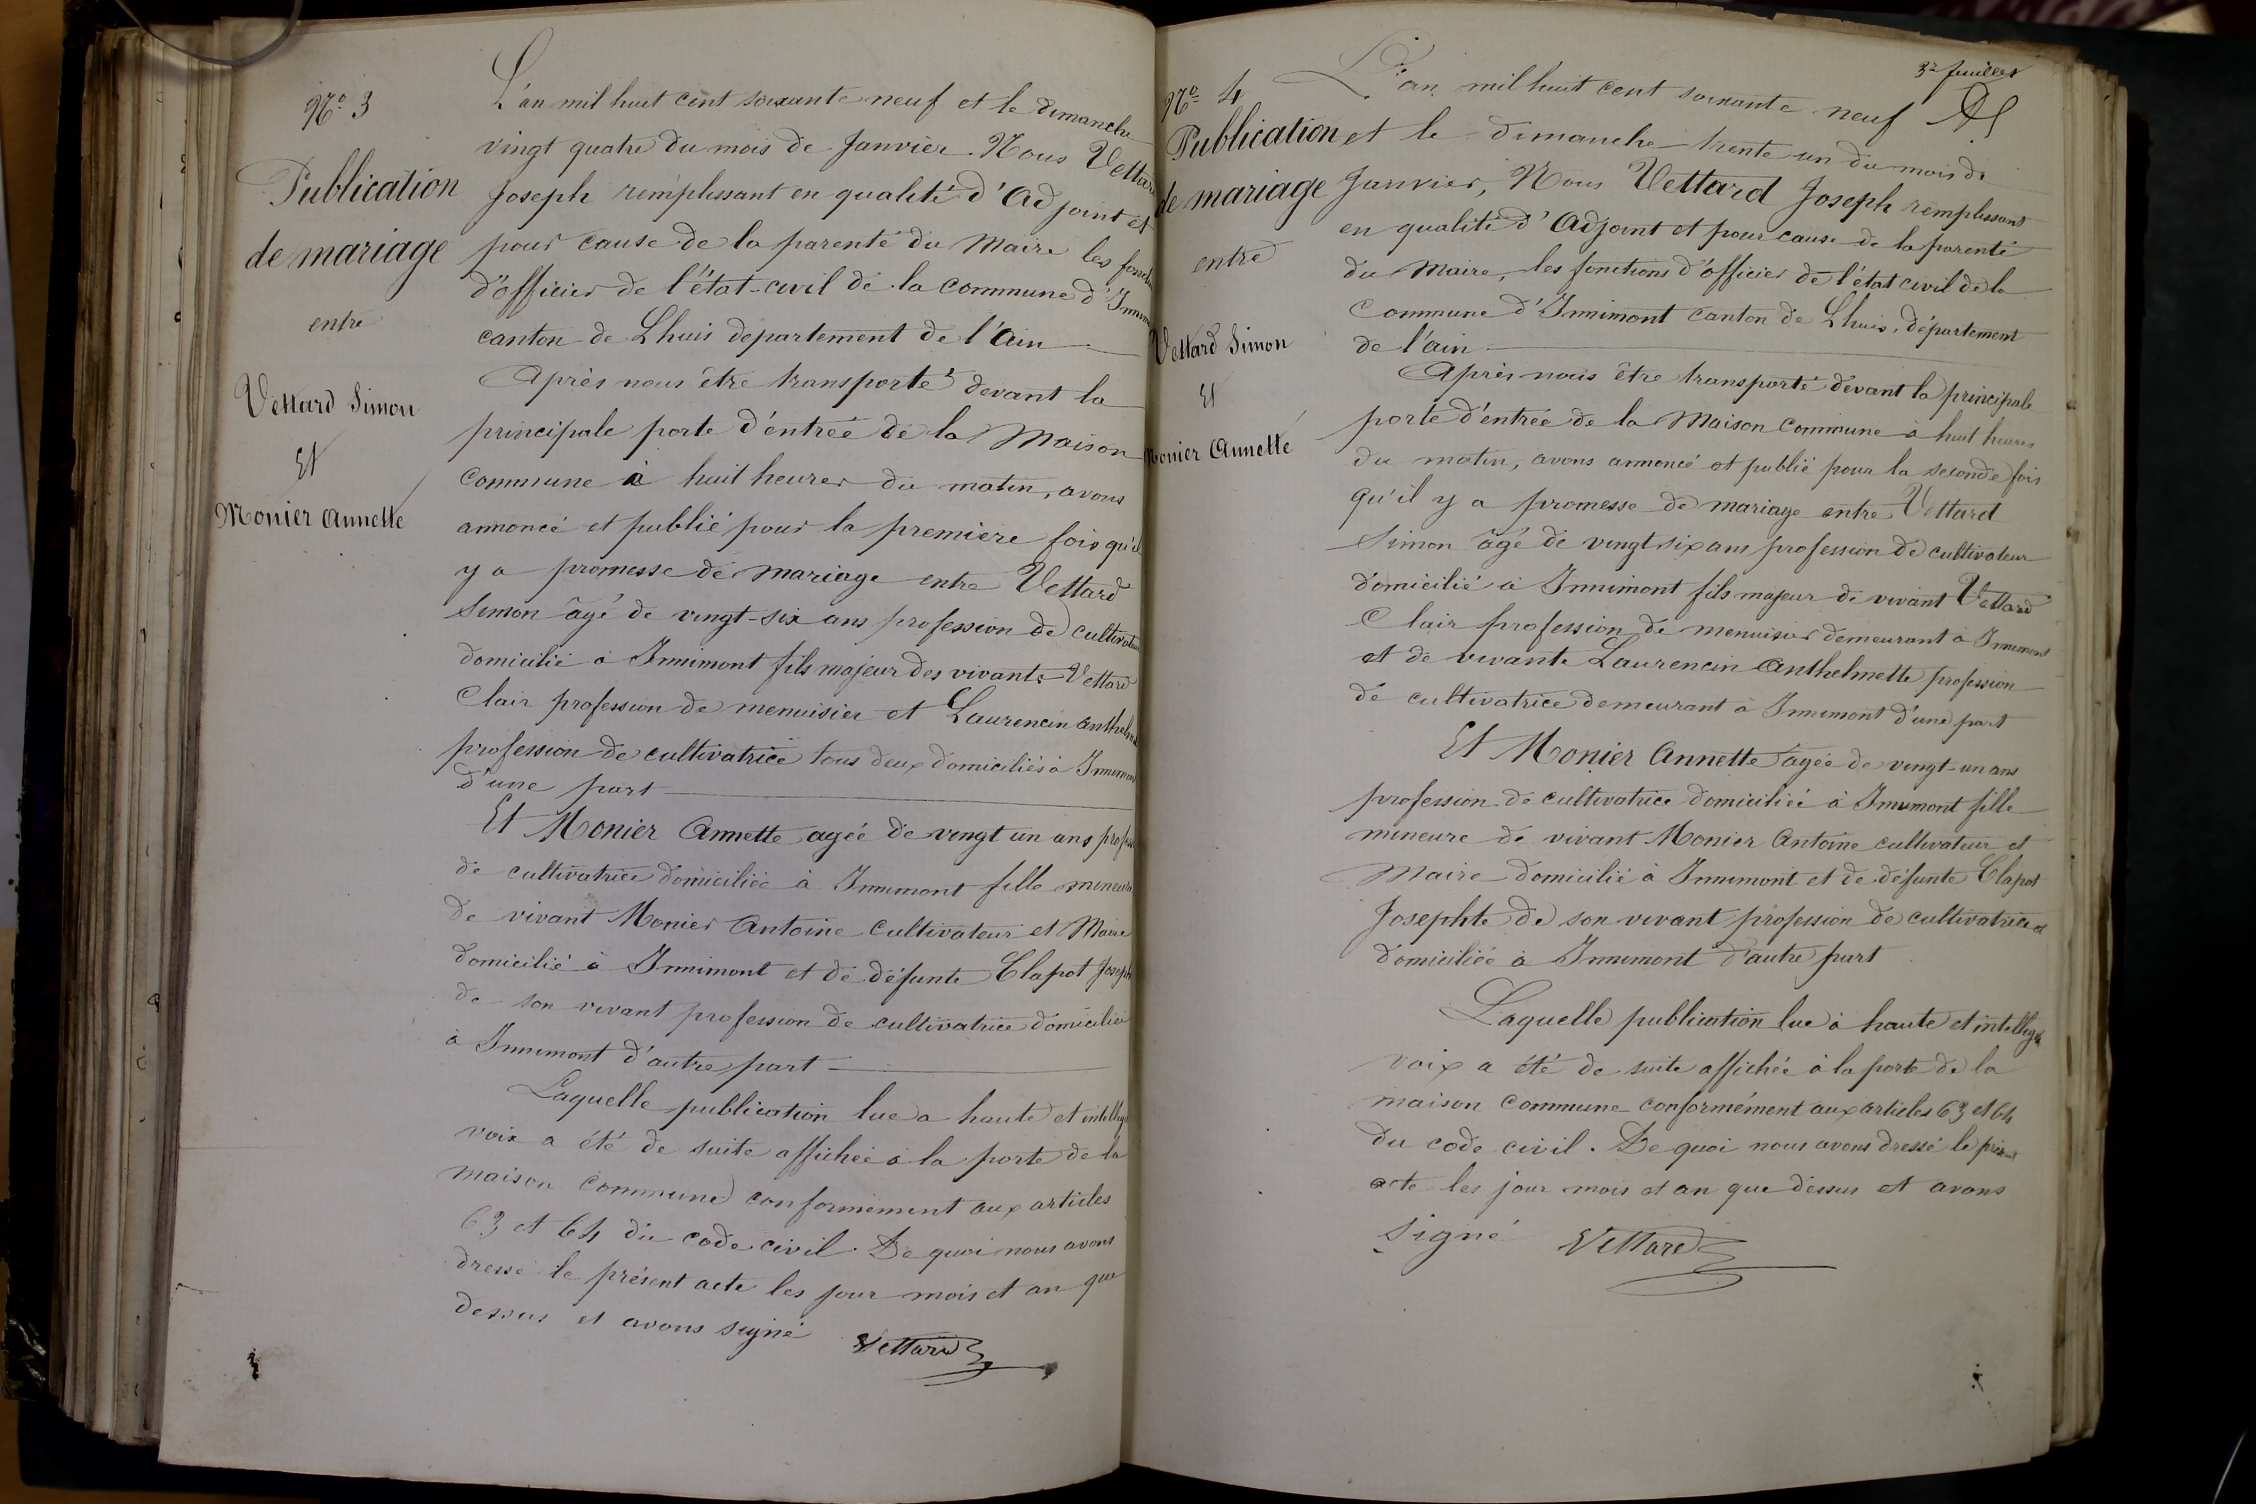 Nº 3
Publication
de mariage
entre
Vettard Simon
Et
Monier Annette
L'an mil huit cent soixante-neuf et le dimanche
vingt quatre du mois de Janvier. Nous Vettard
Joseph remplissant en qualité d'Adjoint et
pour cause de la parenté du Maire les
d'officier de l'état-civil de la Commune
canton de Lhuis département de l'Ain
Après nous être transporté devant la
principale porte d'entrée de la Maison
Commune à huit heures du matin, avons
annoncé et publié pour la première fois qu'il
y a promesse de mariage entre Vettard
Simon âgé de vingt-six ans profession de
domicilié à Innimont fils majeur des vivants Vettard
Clair profession de menuisier et Laurencin
profession de cultivatrice tous deux domiciliés à
d'une part
Et Monier Annette agée de vingt un ans
de cultivatrice domiciliée à Innimont fille mineure
de vivant Monier Antoine cultivateur et Maire
domicilié à Innimont et de défunte Clapot
de son vivant profession de cultivatrice domiciliée
à Innimont d'autre part
Laquelle publication lue a haute et
voix a été de suite affichée à la porte de la
maison Commune conformément aux articles
63 et 64 du code civil. De quoi nous avons
dressé le présent acte les jour mois et an que
dessus et avons signé Vettard
3e feuillet
Nº 4
Publication
de mariage
entre
Vettard Simon
Et
Monier Annette
L'an mil huit cent soixante neuf
et le dimanche trente un du mois de
Janvier, Nous Vettard Joseph remplissant
en qualité d'Adjoint et pour cause de la parenté
du Maire, les fonctions d'officier de l'état civil de la
Commune d'Innimont canton de Lhuis, département
de l'ain
Après nous être transporté devant la principale
porte d'entrée de la Maison Commune à huit heures
du matin, avons annoncé et publié pour la seconde fois
qu'il y a promesse de mariage entre Vettard
Simon âgé de vingt six ans profession de cultivateur
domicilié à Innimont fils majeur de vivant Vettard
Clair profession de menuisier demeurant à Innimont
et de vivante Laurencin Anthelmette profession
de cultivatrice demeurant à Innimont d'une part
Et Monier Annette agée de vingt-un ans
profession de cultivatrice domiciliée à Innimont fille
mineure de vivant Monier Antoine cultivateur et
Maire domicilié à Innimont et de défunte Clapot
Josephte de son vivant profession de cultivatrice
domiciliée à Innimont d'autre part
Laquelle publication lue à haute et
voix a été de suite affichée à la porte de la
maison Commune conformément aux articles 63 et 64
du code civil. De quoi nous avons dressé le présent
acte les jour mois et an que dessus et avons
signé Vettard